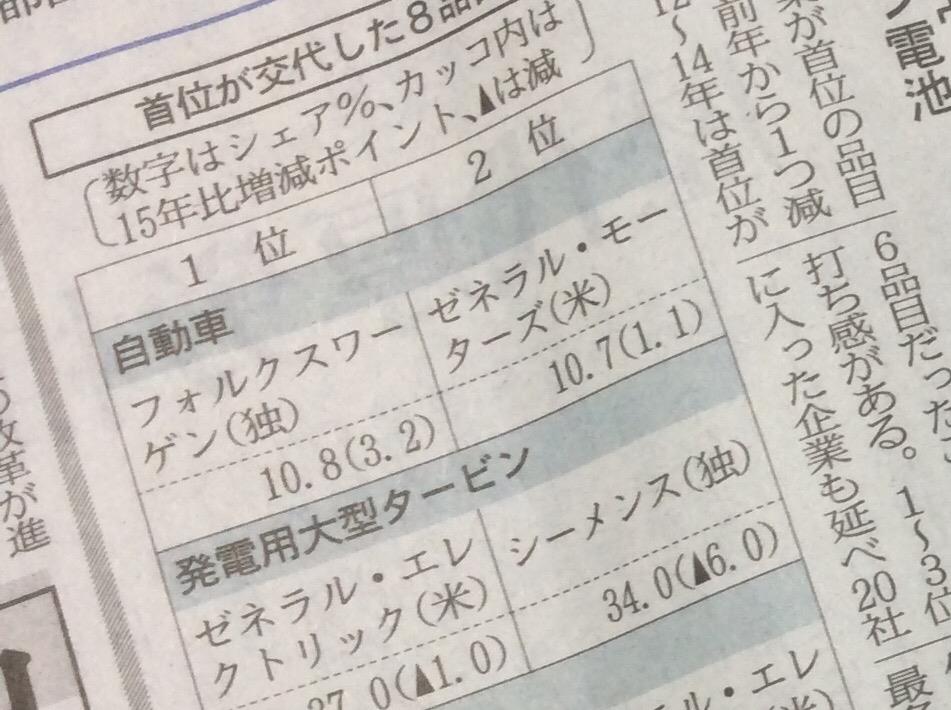 首位が交代した8品
数字はシェア%、カッコ内は
15年比増減ポイント、▲は減
1 位
2 位
自動車
フォルクスワー
ゲン(独)
10.8(3.2)
ゼネラル・モー
ターズ(米)
10.7(1.1)
発電用大型タービン
ゼネラル・エレ
クトリック(米)
37.0(▲1.0)
シーメンス(独)
34.0(▲6.0)
ラル・エレ
電池
が首位の品目
前年から1つ減
12〜14年は首位が
6品目だった。
打ち感がある。1〜3位
に入った企業も延べ20社
改革が進